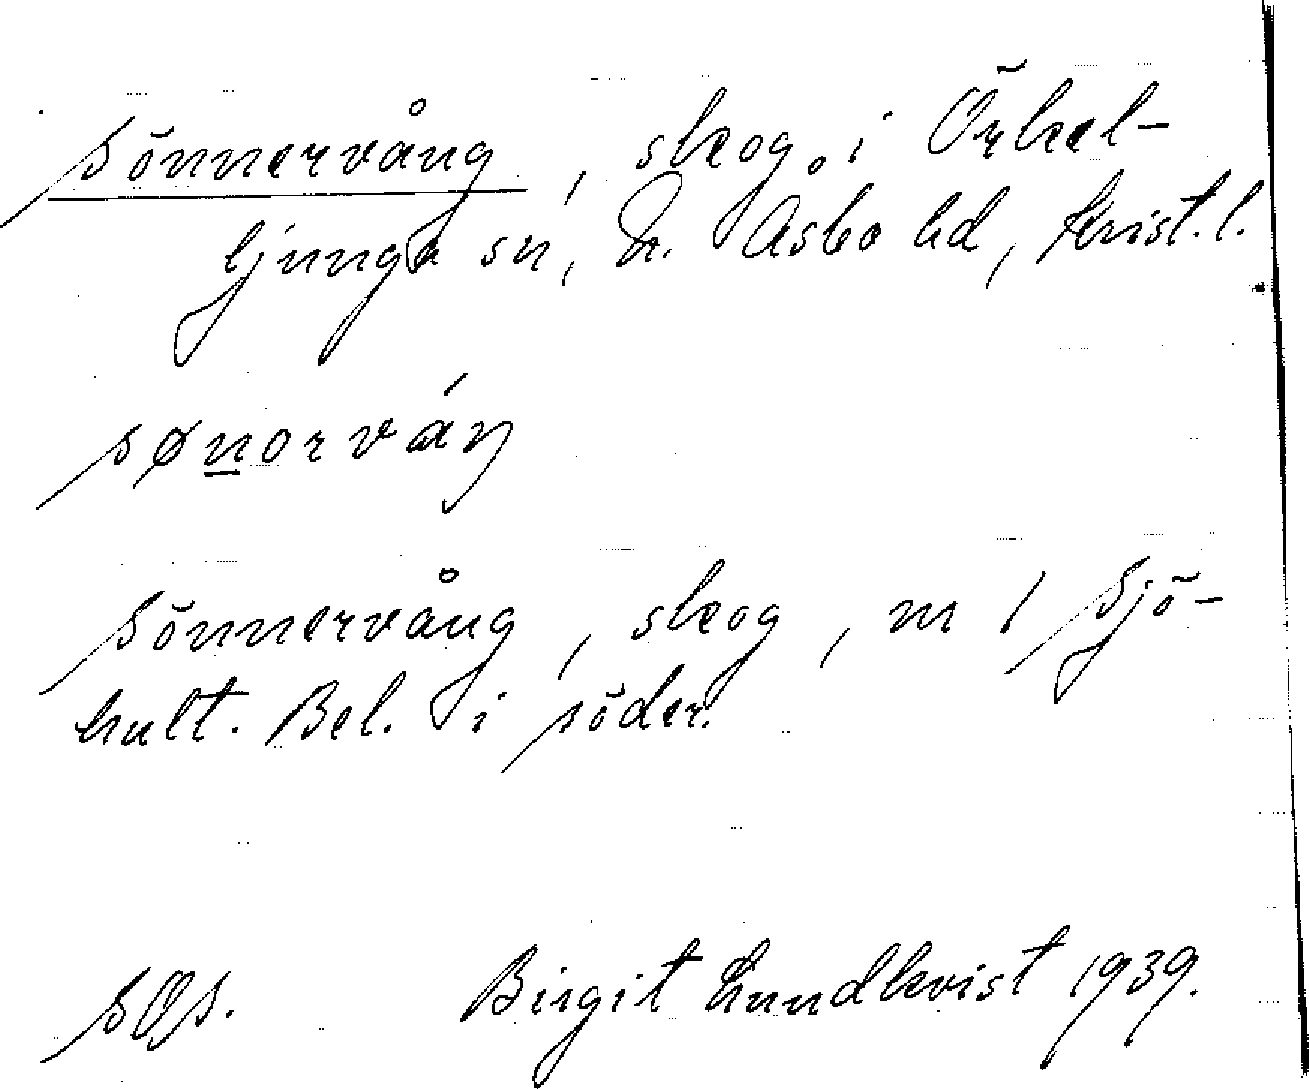 Sönnervång, skog, i Örkel-
ljunga sn, N. Åsbo hd, Krist. l.
sønorváŋ
Sönnervång, skog, m / Sjö-
hult. Bel. i söder.
sØs. Birgit Lundkvist 1939.